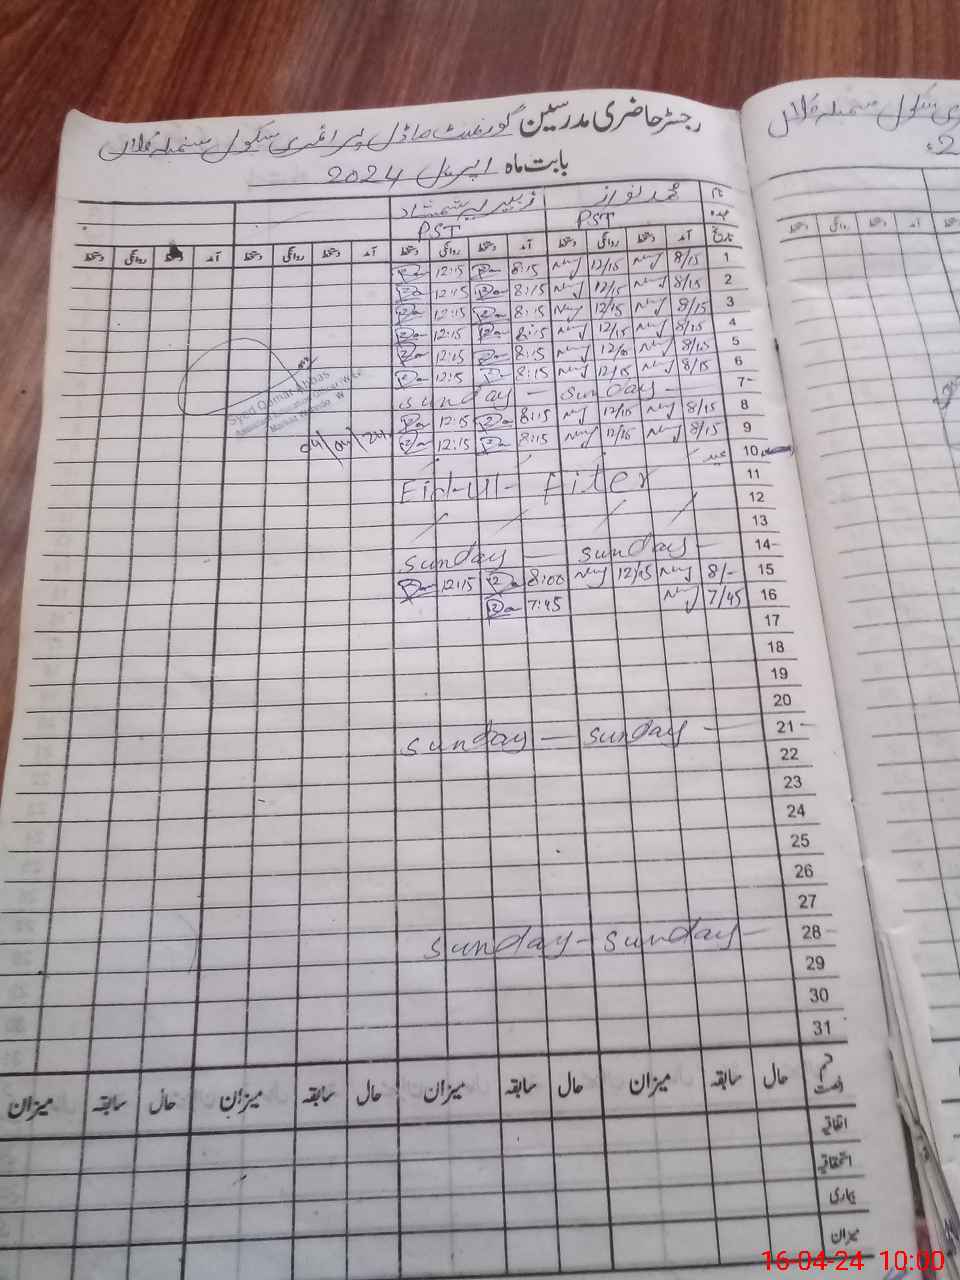 رجسٹر حاضری مدرسین گورنمنٹ ماڈل پرائمری سکول
بابت ماہ اپریل 2024
نام محمد نواز زبیر
عہدہ PST PST
تاریخ آمد دستخط روانگی دستخط آمد دستخط روانگی دستخط آمد دستخط روانگی دستخط آمد دستخط روانگی دستخط
1 8/15 12/15 8:15 12:15
2 8/15 12/15 8:15 12:15
3 8/15 12/15 8:15 12:15
4 8/15 12/15 8:15 12:15
5 8/15 12/15 8:15 12:15
6 8/15 12/15 8:15 12:15
7- Sunday - Sunday -
8 8/15 12/15 8:15 12:15
9 8/15 12/15 8:15 12:15
Syed Qamar Abbas
04/04/24
10 عید
11 Eid-ul-fiter
12
13
14- Sunday - Sunday -
15 8/- 12/15 8:00 12:15
16 7/45 7:45
17
18
19
20
21- Sunday - Sunday -
22
23
24
25
26
27
28- Sunday - Sunday -
29
30
31
قسم رخصت حال سابقہ میزان حال سابقہ میزان حال سابقہ میزان حال سابقہ میزان
اتفاقیہ
استحقاقیہ
بیماری
میزان
16-04-24 10:00